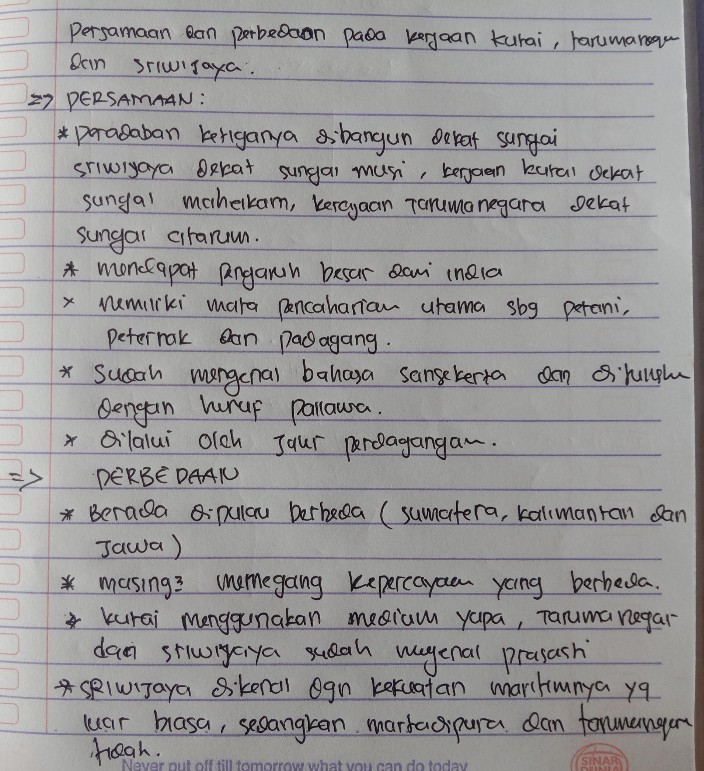 Persamaan dan perbedaan pada kerjaan kutai, tarumanegara
dan sriwijaya.
=> PERSAMAAN:
* peradaban ketiganya dibangun dekat sungai
sriwijaya dekat sungai musi, kerjaan kutai dekat
sungai mahakam, kerajaan Tarumanegara dekat
sungai citarum.
* mendapat pengaruh besar dari india
* memiliki mata pencaharian utama sbg petani,
peternak dan padagang.
* Sudah mengenal bahasa sansekerta dan ditunjuk
dengan huruf pallawa.
* dilalui oleh Jaur perdagangan.
=> PERBEDAAN
* Berada dipulau berbeda (sumatera, kalimantan dan
Jawa)
* masing² memegang kepercayaan yang berbeda.
* kutai menggunakan medium yupa, Tarumanegar
dan sriwijaya sudah mngenal prasasti
* SRIWIJAYA dikenal dgn kekuatan maritimnya yg
luar biasa, sedangkan martadipura dan tarumanegara
tidak.
Never put off till tomorrow what you can do today
SINAR
DUNIA